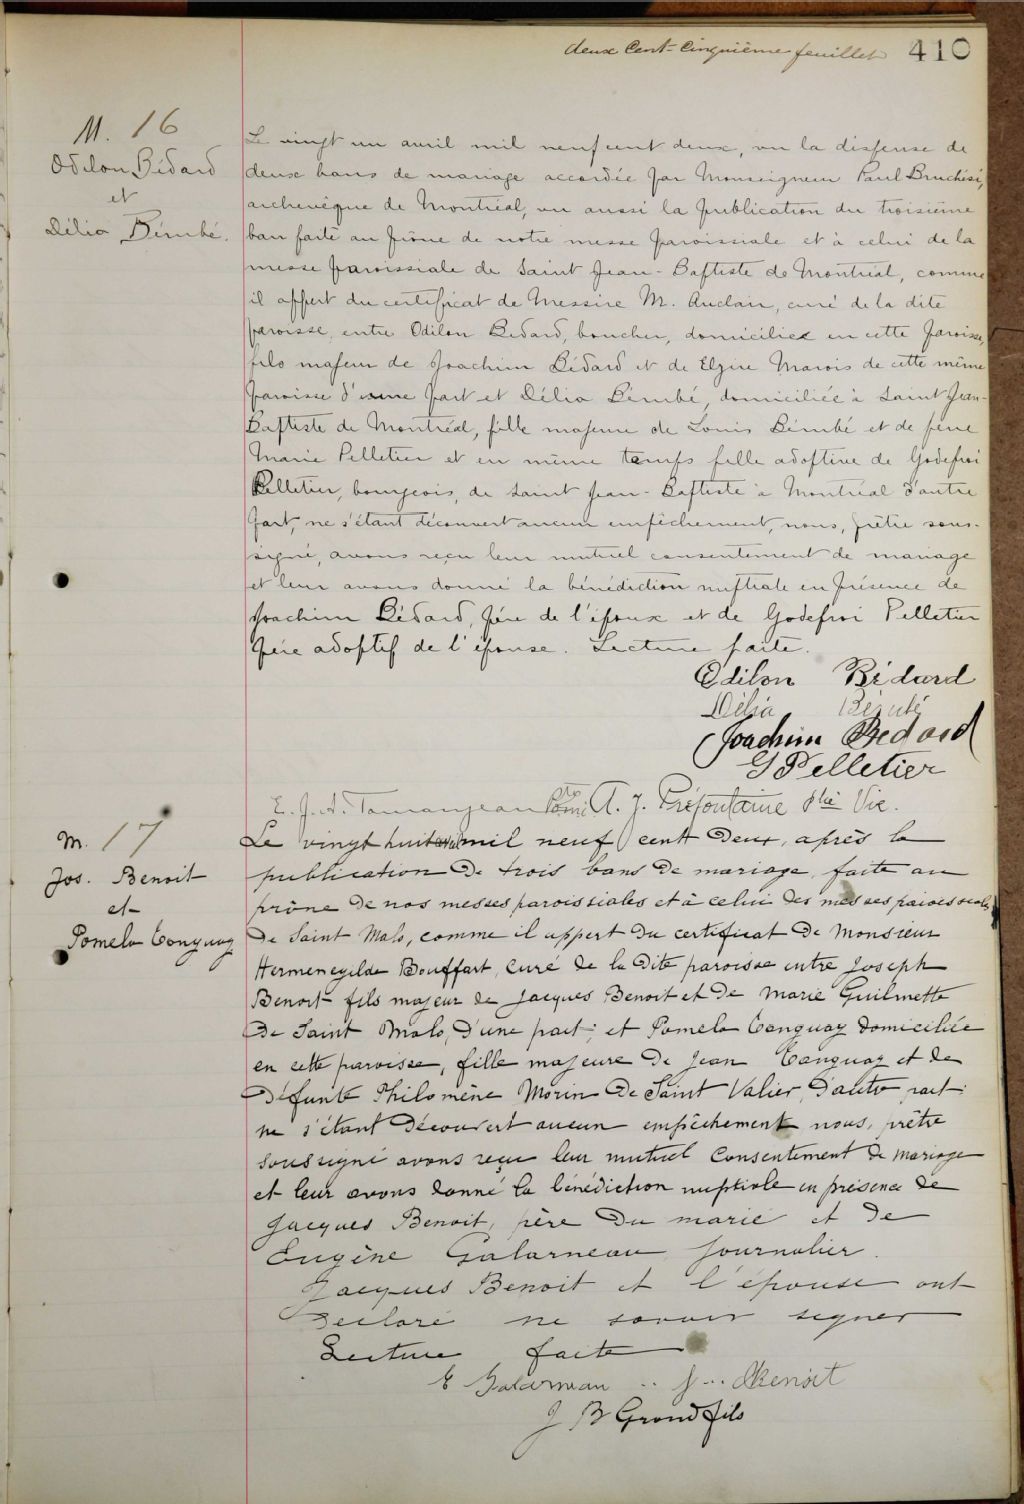 deux Cent-Cinquième feuillet 410
M. 16
Odilon Bédard
et
Délia Bémbé.
Le vingt un avril mil neuf cent deux, vu la dispense de
deux bans de mariage accordée par Monseigneur Paul Bruchési,
archevêque de Montréal, vu aussi la publication du troisième
ban faite au prône de notre messe paroissiale et à celui de la
messe paroissiale de Saint Jean-Baptiste de Montréal, comme
il appert du certificat de Messire M. Auclair, curé de la dite
paroisse, entre Odilon Bédard, boucher, domicilié en cette paroisse,
fils majeur de Joachim Bédard et de Elzire Marois de cette même
paroisse d'une part et Délia Bémbé, domiciliée à Saint Jean-
Baptiste de Montréal, fille majeure de Louis Bémbé et de feue
Marie Pelletier et en même temps fille adoptive de Godefroi
Pelletier, bourgeois, de Saint Jean-Baptiste à Montréal d'autre
part, ne s'étant découvert aucun empêchement, nous, prêtre sous-
signé, avons reçu leur mutuel consentement de mariage
et leur avons donné la bénédiction nuptiale en présence de
Joachim Bédard, père de l'époux et de Godefroi Pelletier
père adoptif de l'épouse. Lecture faite.
Odilon Bédard
Délia
Joachim Bedard
G Pelletier
E. J. A. A. J. Préfontaine Ptre Vic.
M. 17
Jos. Benoit
et
Pomela Tanguay
Le vingt huit avril mil neuf cent deux, après la
publication de trois bans de mariage, faite au
prône de nos messes paroissiales et à celui des messes paroissiales
de Saint Malo, comme il appert du certificat de Monsieur
Hermenegilde Bouffart, curé de la dite paroisse entre Joseph
Benoit fils majeur de Jacques Benoit et de Marie Guilmette
de Saint Malo, d'une part; et Pomela Tanguay domiciliée
en cette paroisse, fille majeure de Jean Tanguay et de
défunte Philomène Morin de Saint Valier, d'autre part
ne s'étant découvert aucun empêchement nous, prêtre
soussigné avons reçu leur mutuel consentement de mariage
et leur avons donné la bénédiction nuptiale en présence de
Jacques Benoit, père du marié et de
Eugène Galarneau journalier.
Jacques Benoit et l'épouse ont
déclaré ne savoir signer
Lecture faite
E Galarneau J Benoit
J B Grondfils